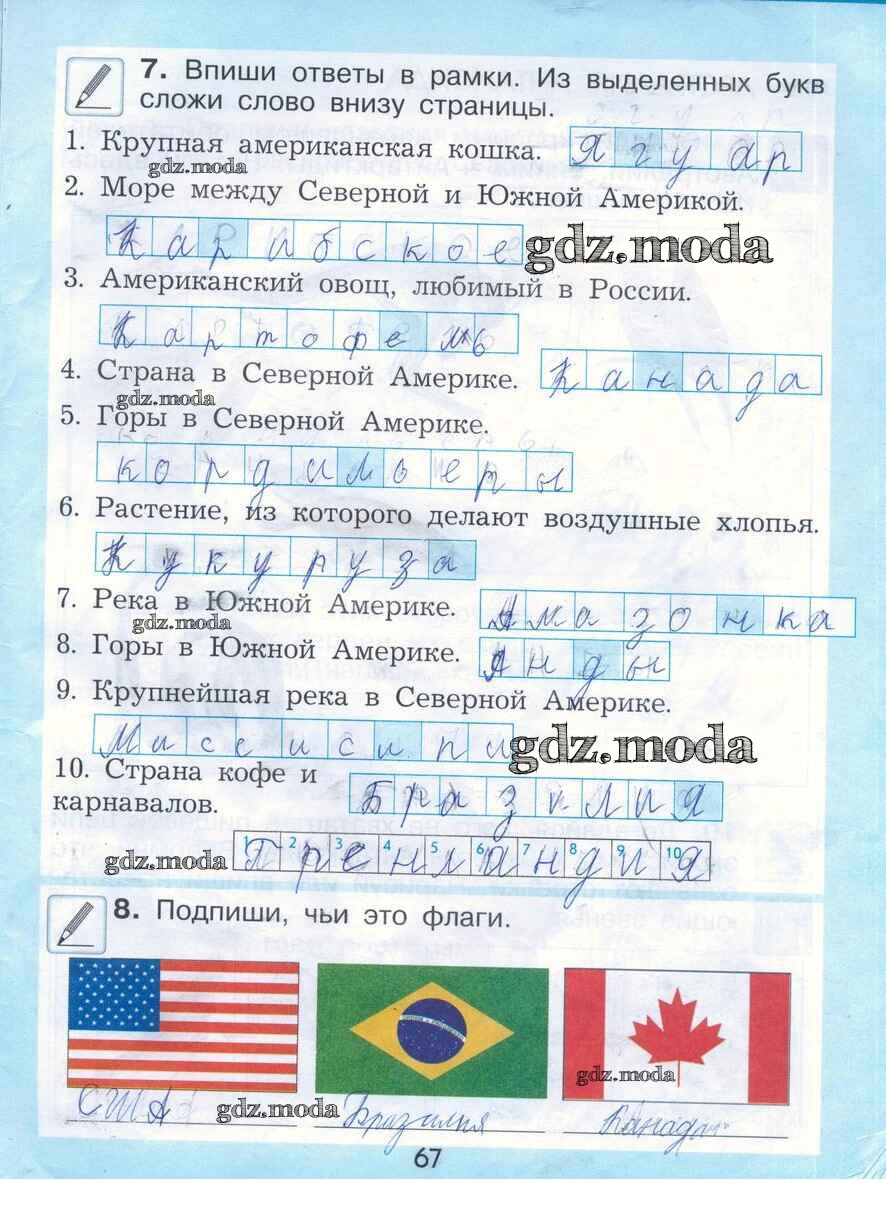 7. Впиши ответы в рамки. Из выделенных букв
сложи слово внизу страницы.
1. Крупная американская кошка. Ягуар
gdz.moda
2. Море между Северной и Южной Америкой.
Карибское gdz.moda
3. Американский овощ, любимый в России.
Картофель
4. Страна в Северной Америке. Канада
gdz.moda
5. Горы в Северной Америке.
кордильеры
6. Растение, из которого делают воздушные хлопья.
Кукуруза
7. Река в Южной Америке. Амазонка
gdz.moda
8. Горы в Южной Америке. Анды
9. Крупнейшая река в Северной Америке.
Миссисипи gdz.moda
10. Страна кофе и
карнавалов. Бразилия
gdz.moda 1 2 3 4 5 6 7 8 9 10 Гренландия
8. Подпиши, чьи это флаги.
gdz.moda
США gdz.moda Бразилия Канада
67